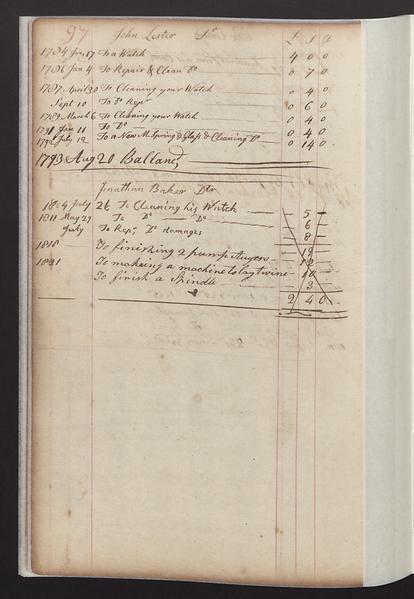 97 John Lester Dr £ S D
1784 Jan 17 To a Watch 4 0 0
1786 Jan 4 To Repair & Clean Do 0 7 0
1787 April 30 To Cleaning your Watch 0 4 0
Sept 10 To Do Repr 0 6 0
1789 March 6 To Cleaning your Watch 0 4 0
1791 Jan 11 To Do 0 4 0
1792 July 12 To a New M. Spring & Glass & Cleaning Do 0 14 0
1793 Aug 20 Ballancd
Jnathan Baker Dtr
1804 July 26 To Cleaning his Watch 5
1811 May 29 To Do Do 6
July To Repg Do damages 8
1818 To finishing 2 pump Augers 12
1821 To makeing a machine to lay twine 10
To finish a Spindle 3
2 4 0